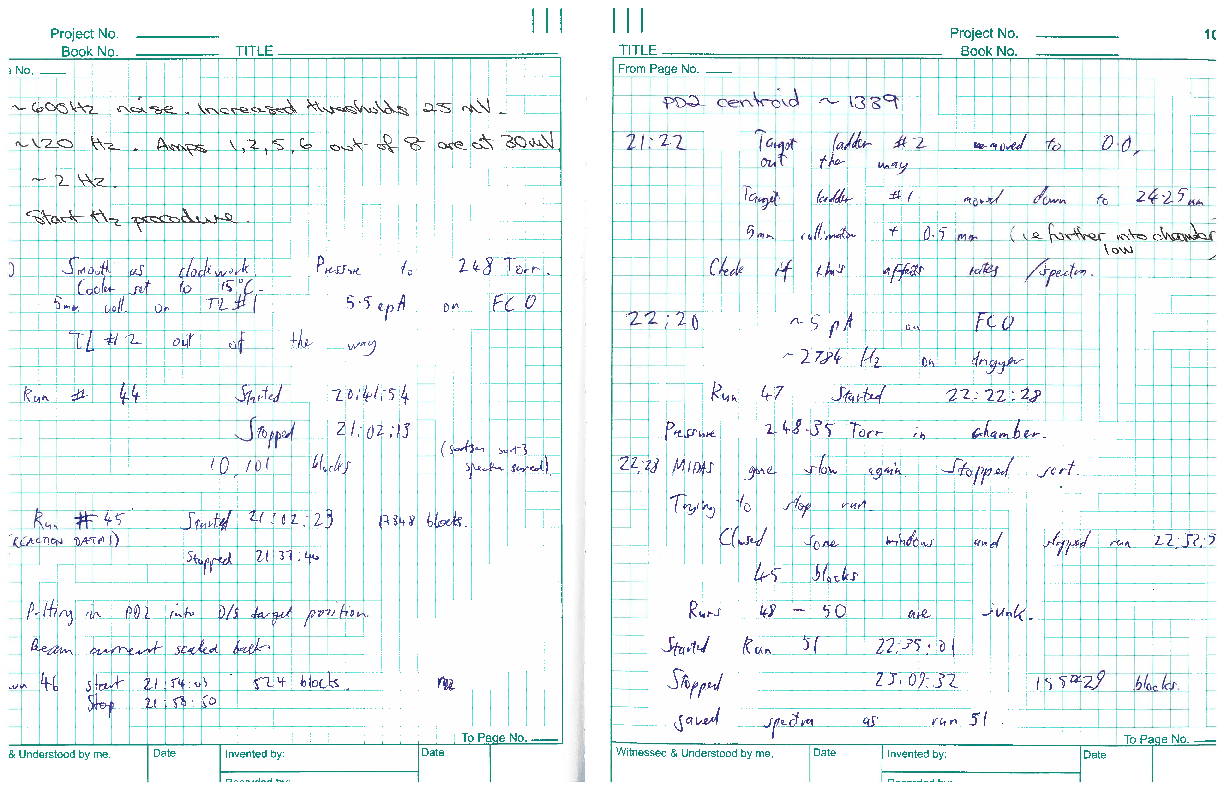 Project No.
Book No. TITLE
No.
~600Hz noise. Increased thresholds 25 mV.
~120 Hz. Amps 1,2,5,6 out of 8 are at 30mV
~ 2 Hz.
Start H2 procedure.
Smooth as clockwork. Pressure to 248 Torr.
Cooler set to 15°C.
5mm coll. on TL #1 5.5 epA on FC0
TL #2 out of the way
Run # 44 Started 20:41:54
Stopped 21:02:13
10,101 blocks
spectra saved)
Run # 45 Started 21:02:23 17348 blocks.
(REACTION DATA!)
Stopped 21:37:40
Putting in PD2 into D/S target position.
Beam current scaled back.
46 start 21:54:03 524 blocks.
Stop 21:58:50
To Page No.
& Understood by me. Date Invented by: Date
Recorded by:
Project No. 10
TITLE Book No.
From Page No.
PD2 centroid ~ 1339
21:22 Target ladder #2 moved to 0.0,
out the way
Target ladder #1 moved down to 24.25 mm
5mm collimator + 0.5 mm (i.e further into chamber
low
Check if this affects rates /spectra.
22:20 ~5 pA on FC0
~2784 Hz on trigger
Run 47 Started 22:22:28
Pressure 248.35 Torr in chamber.
22:28 MIDAS gone slow again. Stopped sort.
Trying to stop run.
Closed some windows and stopped run 22:32:5
45 blocks
Runs 48 - 50 are junk.
Started Run 51 22:35:01
Stopped 23:09:32 blocks.
saved spectra as run 51.
To Page No.
Witnessed & Understood by me, Date Invented by: Date
Recorded by: